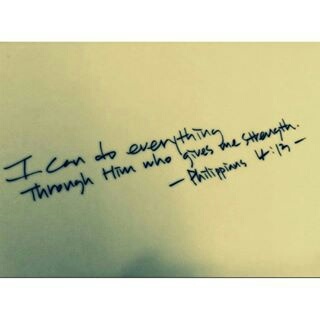 I can do everything
Through Him who gives me strength.
- Philippians 4:13 -